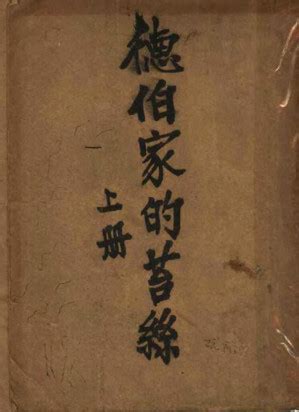 德伯家的苔絲
上册